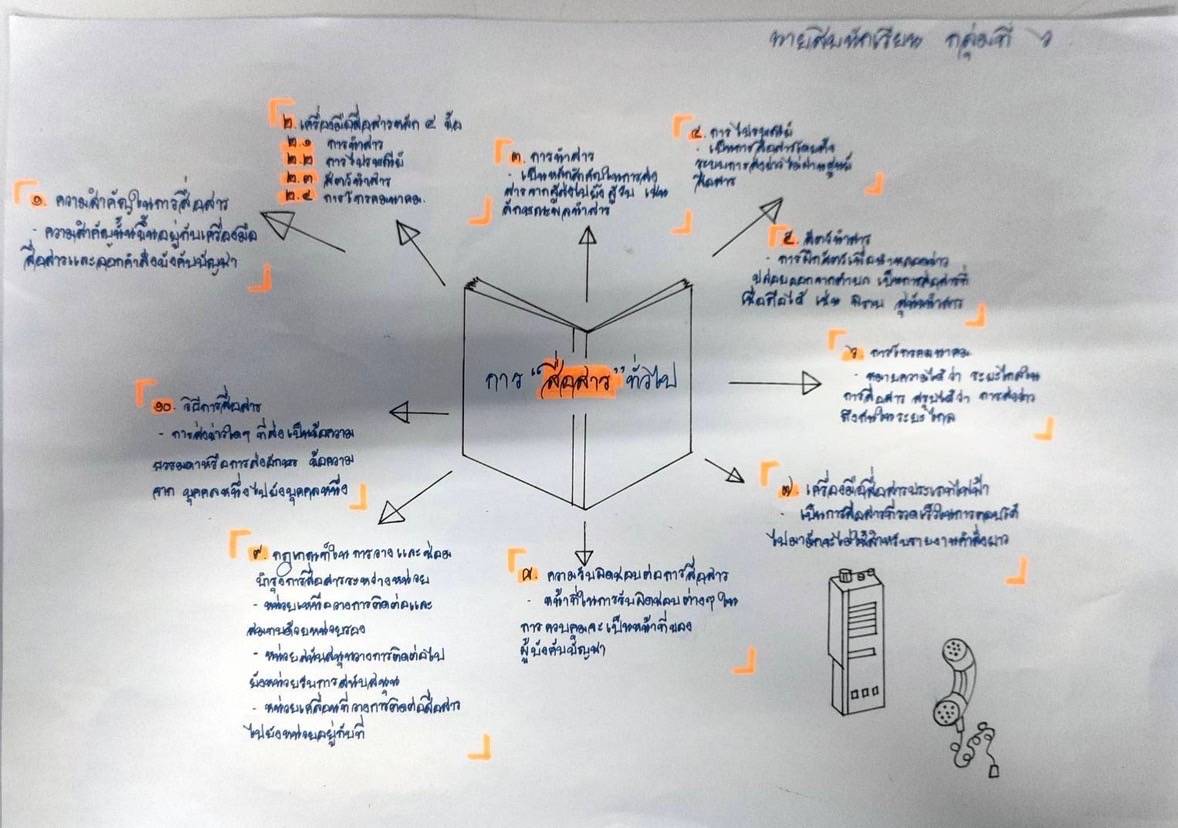 นายสิบนักเรียน กลุ่มที่ ๖
๑. ความสำคัญในการสื่อสาร
- ความสำคัญนั้นขึ้นอยู่กับเครื่องมือ
สื่อสารและออกคำสั่งบังคับบัญชา
๒. เครื่องมือสื่อสารหลัก ๔ ข้อ
๒.๑ การนำสาร
๒.๒ การไปรษณีย์
๒.๓ สัตว์นำสาร
๒.๔ การโทรคมนาคม.
๓. การนำสาร
- เป็นหลักสำคัญในการส่ง
สารจากผู้ส่งไปยัง ผู้รับ เช่น
นำสาร
๔. การไปรษณีย์
- เป็นการสื่อสารโดย
ระบบการส่งข่าวไม่ผ่านศูนย์
สื่อสาร
๕. สัตว์นำสาร
- การฝึกสัตว์เพื่อ
ปล่อยออกจากตำบล เป็นการสื่อสารที่
เชื่อถือได้ เช่น พิราบ สุนัขนำสาร
๖. การโทรคมนาคม
- หมายความได้ว่า ระยะไกลใน
การสื่อสาร สรุปได้ว่า การส่งข่าว
ถึงกันในระยะไกล
การ "สื่อสาร" ทั่วไป
๗. เครื่องมือสื่อสารประเภทไฟฟ้า
- เป็นการสื่อสารที่รวดเร็วในการตอบโต้
ไปมามักจะไม่ใช้สำหรับรายงานคำสั่งยาว
๘. ความรับผิดชอบต่อการสื่อสาร
- หน้าที่ในการรับผิดชอบต่างๆ ใน
การควบคุมจะเป็นหน้าที่ของ
ผู้บังคับบัญชา
๙. กฎเกณฑ์ในการวาง และซ่อม
บำรุงการสื่อสารระหว่างหน่วย
- หน่วยเหนือวางการติดต่อและ
สมทบด้วยหน่วยรอง
- หน่วยสนับสนุนวางการติดต่อไป
ยังหน่วยรับการสนับสนุน
- หน่วยเคลื่อนที่วางการติดต่อสื่อสาร
ไปยังหน่วยอยู่กับที่
๑๐. วิธีการสื่อสาร
- การส่งข่าวใดๆ ที่ส่งเป็นข้อความ
ธรรมดาหรือการส่งอักษร ข้อความ
จาก บุคคลหนึ่งไปยังบุคคลหนึ่ง